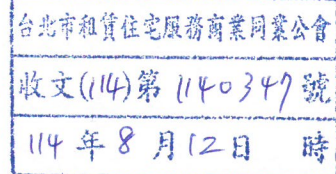 台北市租賃住宅服務商業同業公會
收文(114)第 1140347 號
114 年 8 月 12 日 時